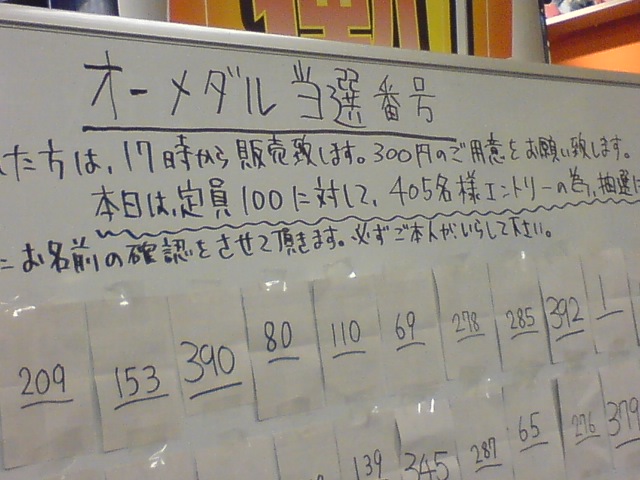 オーメダル当選番号
た方は、17時から販売致します。300円のご用意をお願い致します。
本日は、定員100に対して、405名様エントリーの為、抽選に
お名前の確認をさせて頂きます。必ずご本人が、いらして下さい。
209 153 390 80 110 69 278 285 392 1
139 345 287 65 276 379